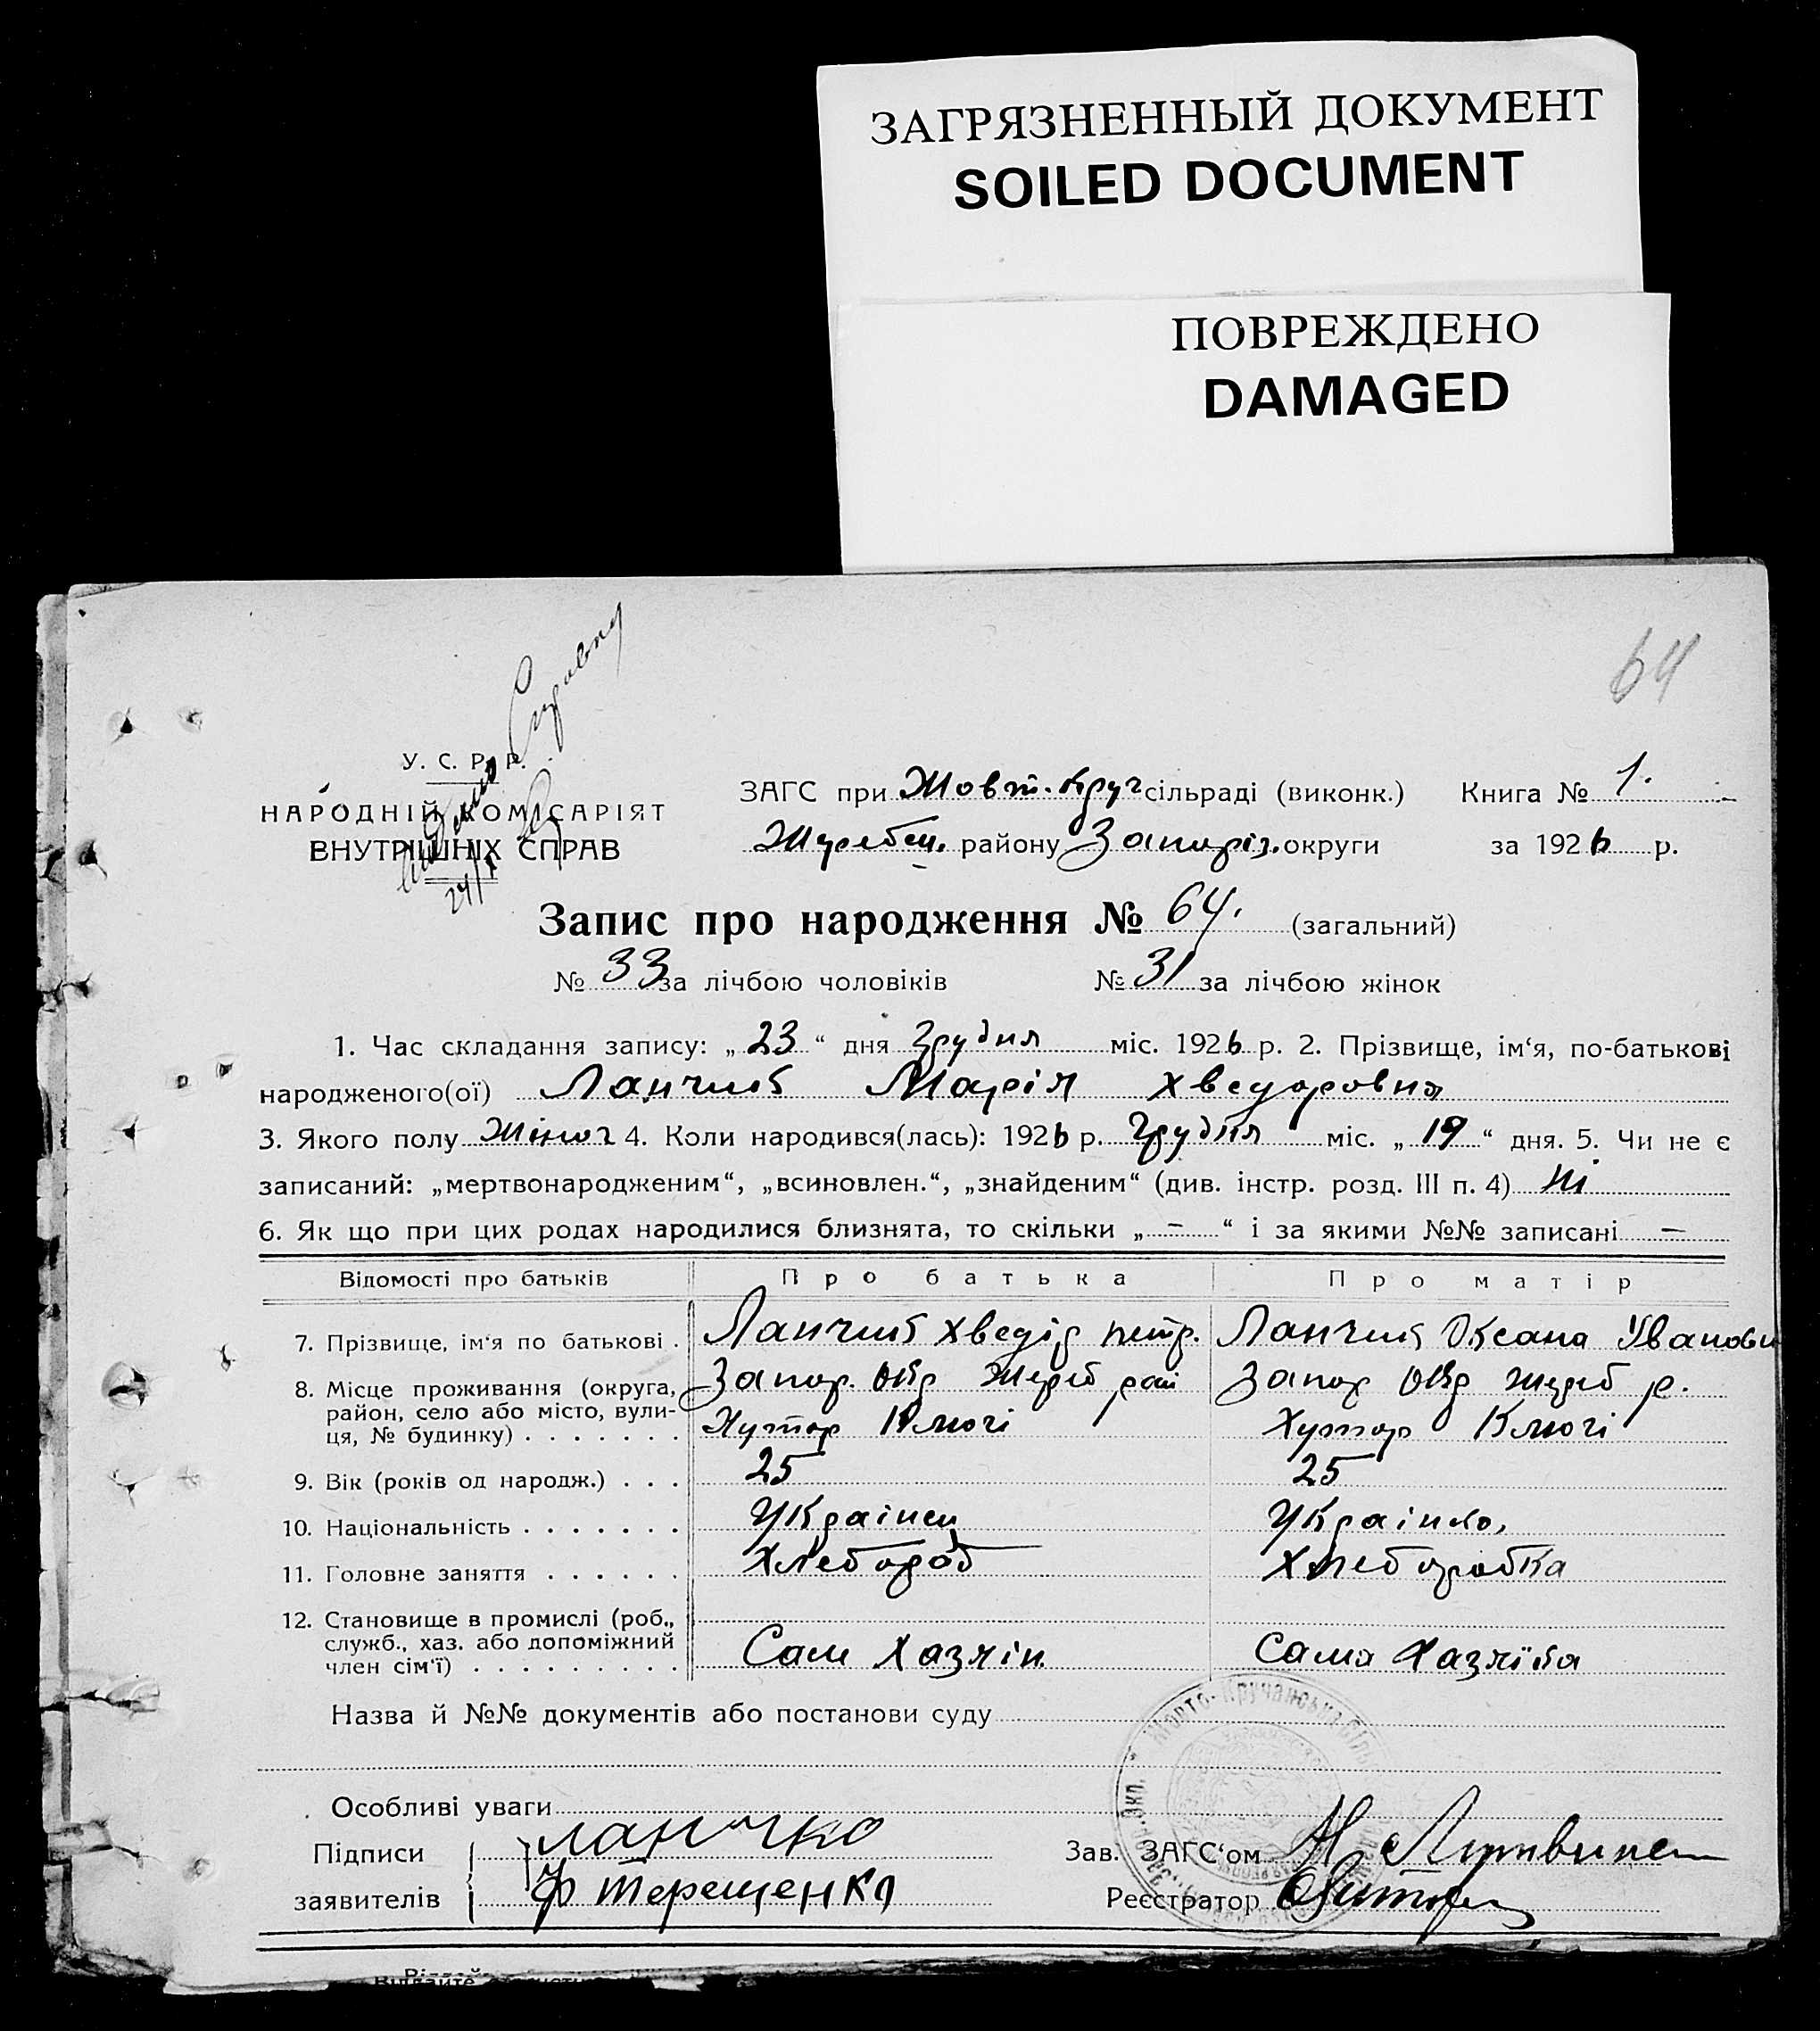 ЗАГРЯЗНЕННЫЙ ДОКУМЕНТ
SOILED DOCUMENT
ПОВРЕЖДЕНО
DAMAGED
64
У. С. Р. Р.
НАРОДНІЙ КОМІСАРІЯТ
ВНУТРІШНІХ СПРАВ
ЗАГС при Жовт. Круч сільраді (виконк.) Книга № 1.
Жеребец. району Запоріз. округи за 1926 р.
Запис про народження № 64. (загальний)
№ 33 за лічбою чоловіків № 31 за лічбою жінок
1. Час складання запису: „23“ дня Грудня міс. 1926 р. 2. Прізвище, ім‘я, по-батькові
народженого(ої) Ланчик Марія Хведоровна
3. Якого полу Жіноч 4. Коли народився(лась): 1926 р. Грудня міс. „19“ дня. 5. Чи не є
записаний: „мертвонародженим“, „всиновлен.“, „знайденим“ (див. інстр. розд. III п. 4) ні
6. Як що при цих родах народилися близнята, то скільки „—“ і за якими №№ записані —
Відомості про батьків Про батька Про матір
7. Прізвище, ім‘я по батькові . Ланчик Хведір петр. Ланчик Оксана Иванови
8. Місце проживання (округа, Запор. окр Жереб рай Запор окр жереб р.
район, село або місто, вули-
ця, № будинку) . . . . . . . Хутор Ключі Хутор Ключі
9. Вік (років од народж.) . . . 25 25
10. Національність . . . . . . . Українец Українка
11. Головне заняття . . . . . . Хлебороб Хлеборобка
12. Становище в промислі (роб.,
служб., хаз. або допоміжний
член сім‘ї) . . . . . . . . . Сам Хазяін. Сама Хазяїка
Назва й №№ документів або постанови суду
Особливі уваги
Підписи ланчко Зав. ЗАГС‘ом
заявителів Ф Терещенко Реєстратор